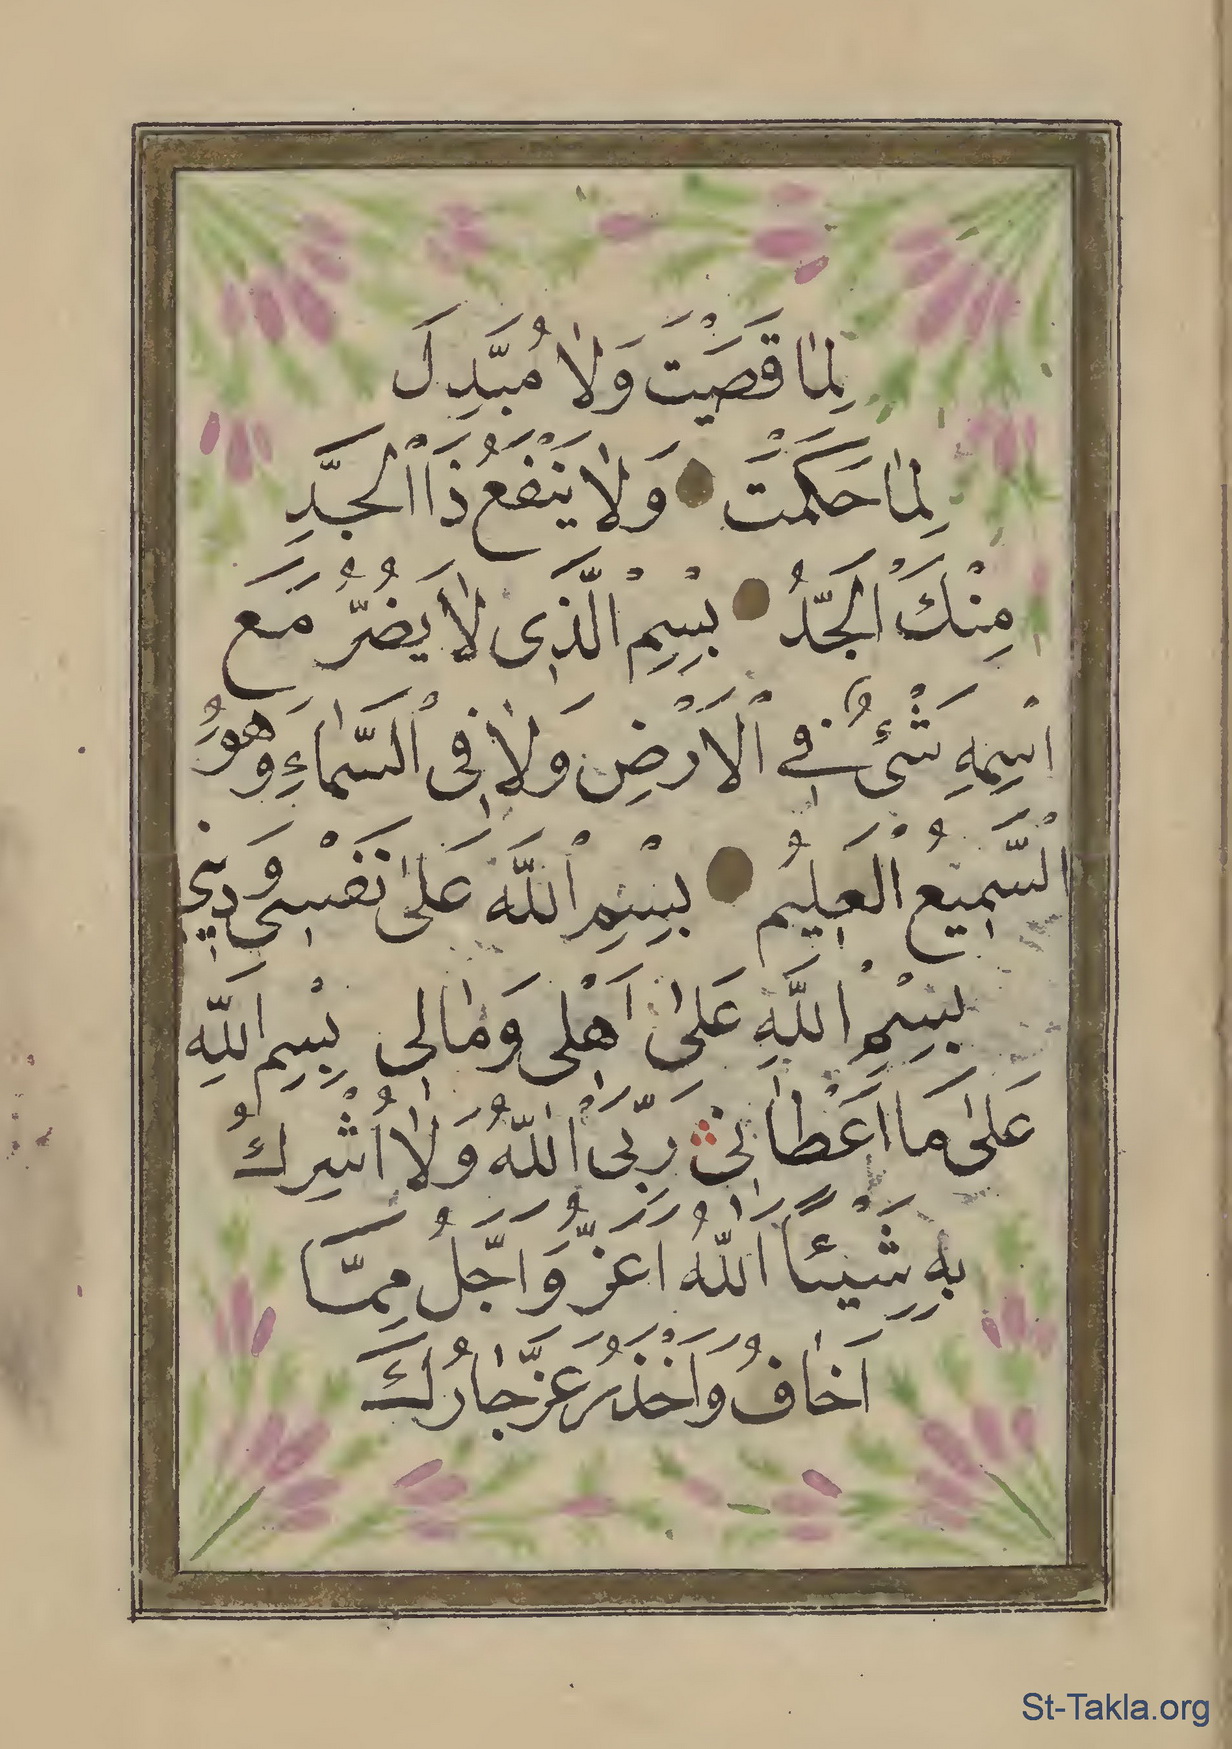 لِمٰا قَضَيْتَ وَلاٰ مُبَّدِلَ
لِمٰا حَكَمْتَ وَلاٰ يَنْفَعُ ذَا اْلجَّدِ
مِنْكَ اْلجَّدُ بِسْمِ الَّذِى لاٰ يَضُرُّ مَعَ
اسْمِهِ شَىْءٌ فِي اْلاَرْضِ وَلاٰ فِى اْلسَّمٰاءِ وَهُوَ
اْلسَّمِيعُ اْلعَلِيُم بِسْمِ اْللَّه عَلىٰ نَفْسِى وَدِينِى
بِسْمِ اللَّهِ عَلىٰ اَهْلِى وَمٰالِى بِسْمِ اللَّهِ
عَلىٰ مَا اَعْطٰانِى رَبِّىَ اْللّٰهُ وَلاٰ اُشْرِكُ
بِهِ شَيْئًا اَللّٰهُ اَعَزُّ وَاَجَّلُ مِمَّا
اَخٰافُ وَاَحْذَرُ عَزَّ جٰارُكَ
St-Takla.org